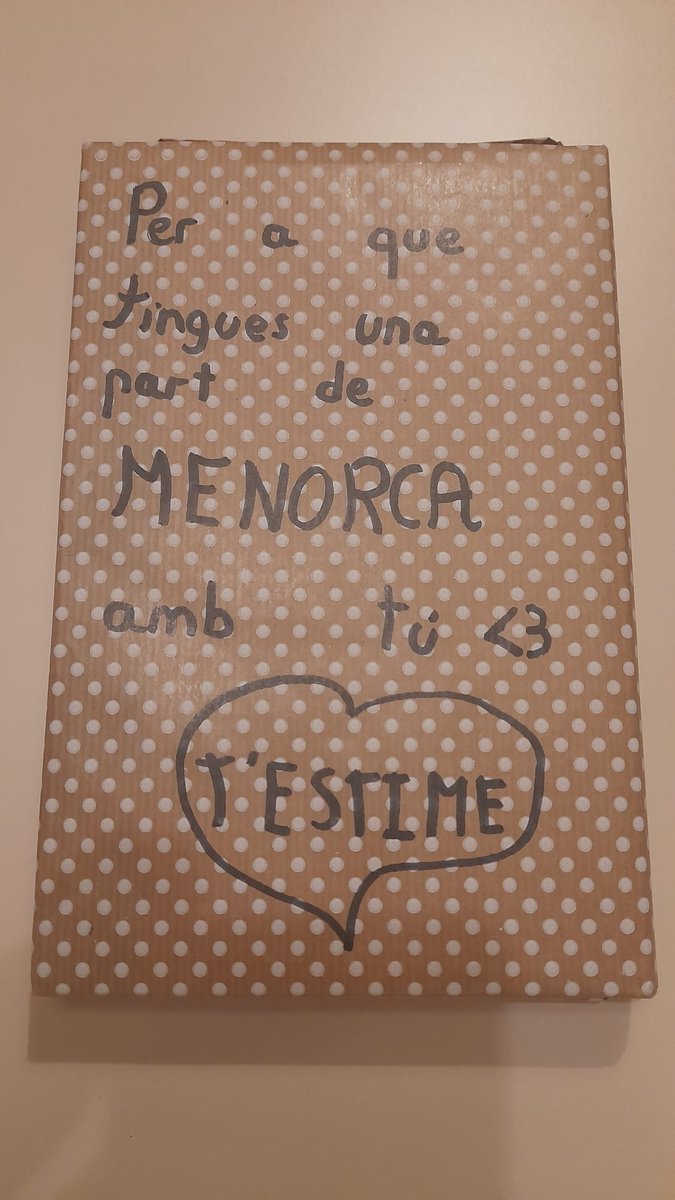 Per a que
tingues una
part de
MENORCA
amb tú <3
T'ESTIME